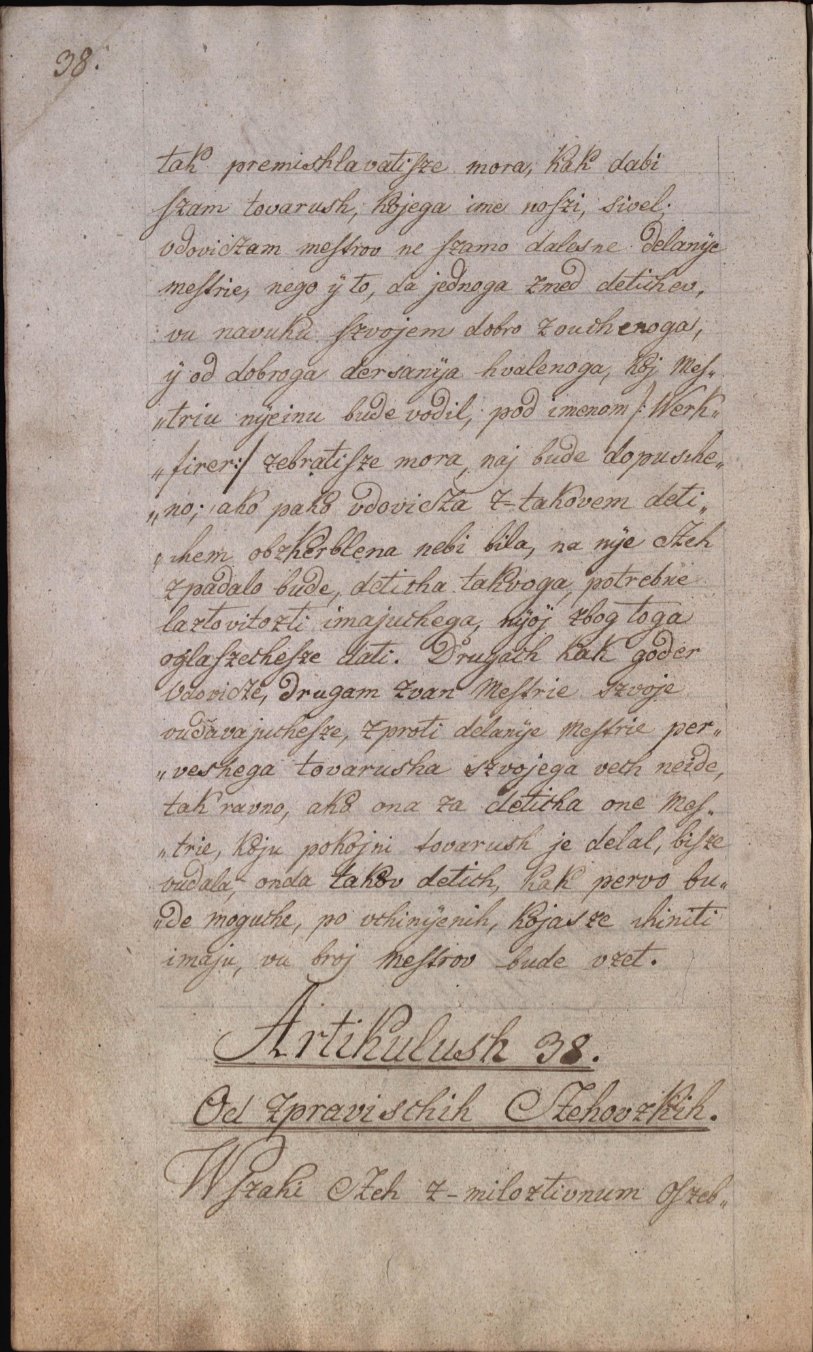 38.
tak premishlavatisze mora, kak dabi
szam tovarush, kojega ime noszi, sivel.
vdoviczam mestrov ne szamo dalesne delanÿe
mestrie, nego ÿ to, da jednoga zmed detichev,
vu navuku szvojem dobro zouchenoga,
ÿ od dobroga dersanÿa hvalenoga, koj Mes„
„triu nÿeinu bude vodil, pod imenom /: Werk„
„firer:/ zebratisze mora, naj bude dopusche„
„no; ako pako vdovicza z-takovem deti„
„chem obzkerblena nebi bila, na nÿe Czeh
zpadalo bude, deticha takvoga, potrebne
laztovitozti imajuchega, nÿoj zbog toga
oglaszechesze dati. Drugach kak goder
Vdovicze, drugam zvan Mestrie szvoje
vudavajuchesze, zproti delanÿe Mestrie per„
„veshega tovarusha szvojega vech neide,
tak ravno, ako ona za deticha one Mes„
„trie, koju pokojni tovarush je delal, bisze
vudala, onda takov detich, kak pervo bu„
„de moguche, po vchinÿenih, kojasze chiniti
imaju, vu broj Mestrov bude vzet.
Artikulush 38.
Od zpravischih Czehovzkih.
Wszaki Czeh z-miloztivnum Oszeb„